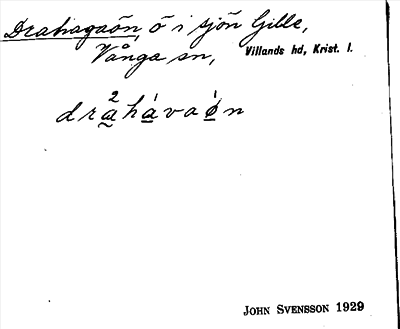 Drahagaön, ö i sjön Gille,
Vånga sn, Villands hd, Krist. l.
drahavaøn
JOHN SVENSSON 1929